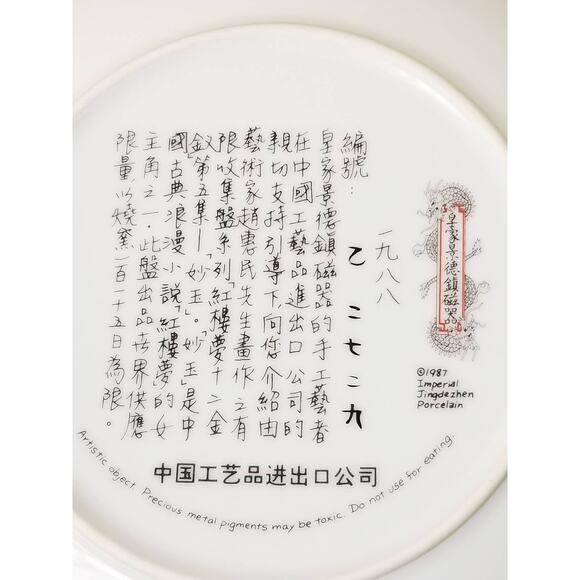 編號:
一九八八
乙 二七二九
皇家景德鎮磁器的手工藝者
在中國工藝品進出口公司的
親切支持引導下,向您介紹由
藝術家趙惠民先生畫作之有
限收集盤系列「紅樓夢十二金
釵」第五集—「妙玉」。妙玉是中
國古典浪漫小說「紅樓夢」的女
主角之一。此盤出品世界供應
限量以燒窯一百一十五日為限。
皇家景德鎮磁器
©1987
Imperial
Jingdezhen
Porcelain
中国工艺品进出口公司
Artistic object. Precious metal pigments may be toxic. Do not use for eating.